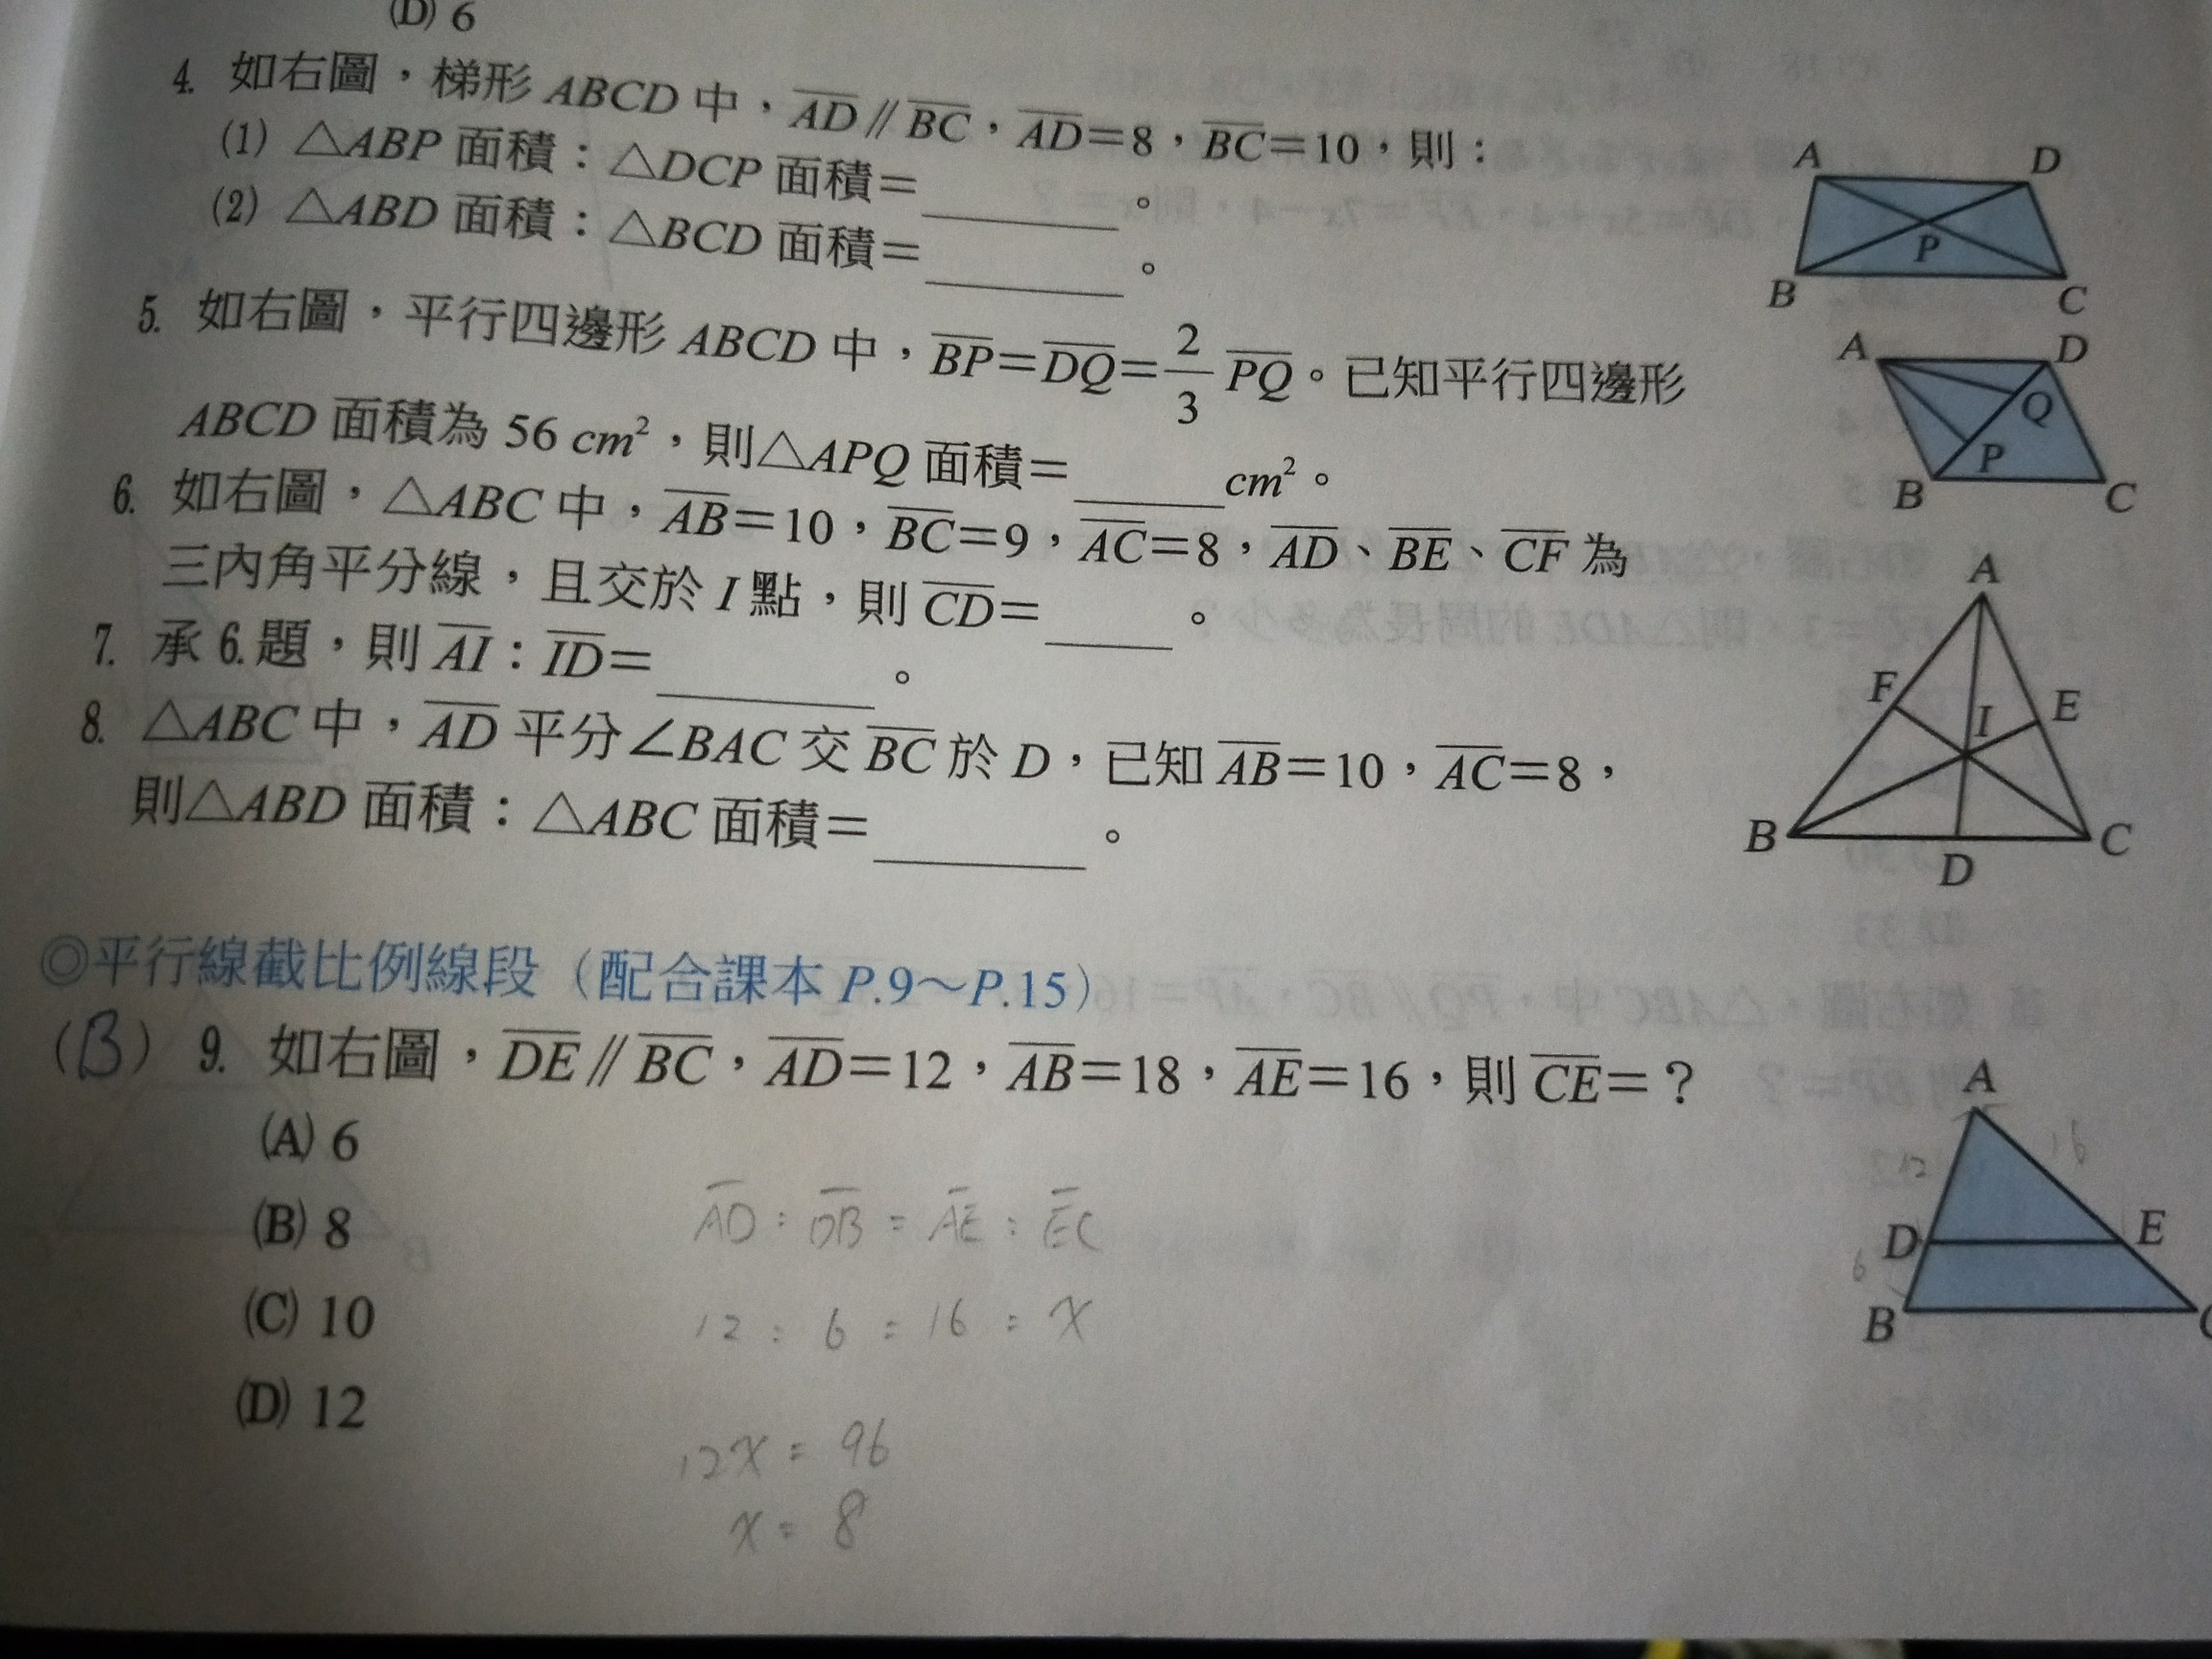 (D) 6
4. 如右圖，梯形 ABCD 中，AD // BC，AD＝8，BC＝10，則：
(1) △ABP 面積：△DCP 面積＝______。
(2) △ABD 面積：△BCD 面積＝______。
A
D
P
B
C
5. 如右圖，平行四邊形 ABCD 中，BP＝DQ＝2/3 PQ。已知平行四邊形
ABCD 面積為 56 cm²，則△APQ 面積＝_____cm²。
A
D
Q
P
B
C
6. 如右圖，△ABC 中，AB＝10，BC＝9，AC＝8，AD、BE、CF 為
三內角平分線，且交於 I 點，則 CD＝____。
7. 承 6. 題，則 AI：ID＝______。
8. △ABC 中，AD 平分∠BAC 交 BC 於 D，已知 AB＝10，AC＝8，
則△ABD 面積：△ABC 面積＝______。
A
F
I
E
B
C
D
◎平行線截比例線段（配合課本 P.9～P.15）
(B) 9. 如右圖，DE // BC，AD＝12，AB＝18，AE＝16，則 CE＝？
(A) 6
(B) 8
(C) 10
(D) 12
AD : DB = AE : EC
12 : 6 = 16 : x
12x = 96
x = 8
A
12
16
D
E
6
B